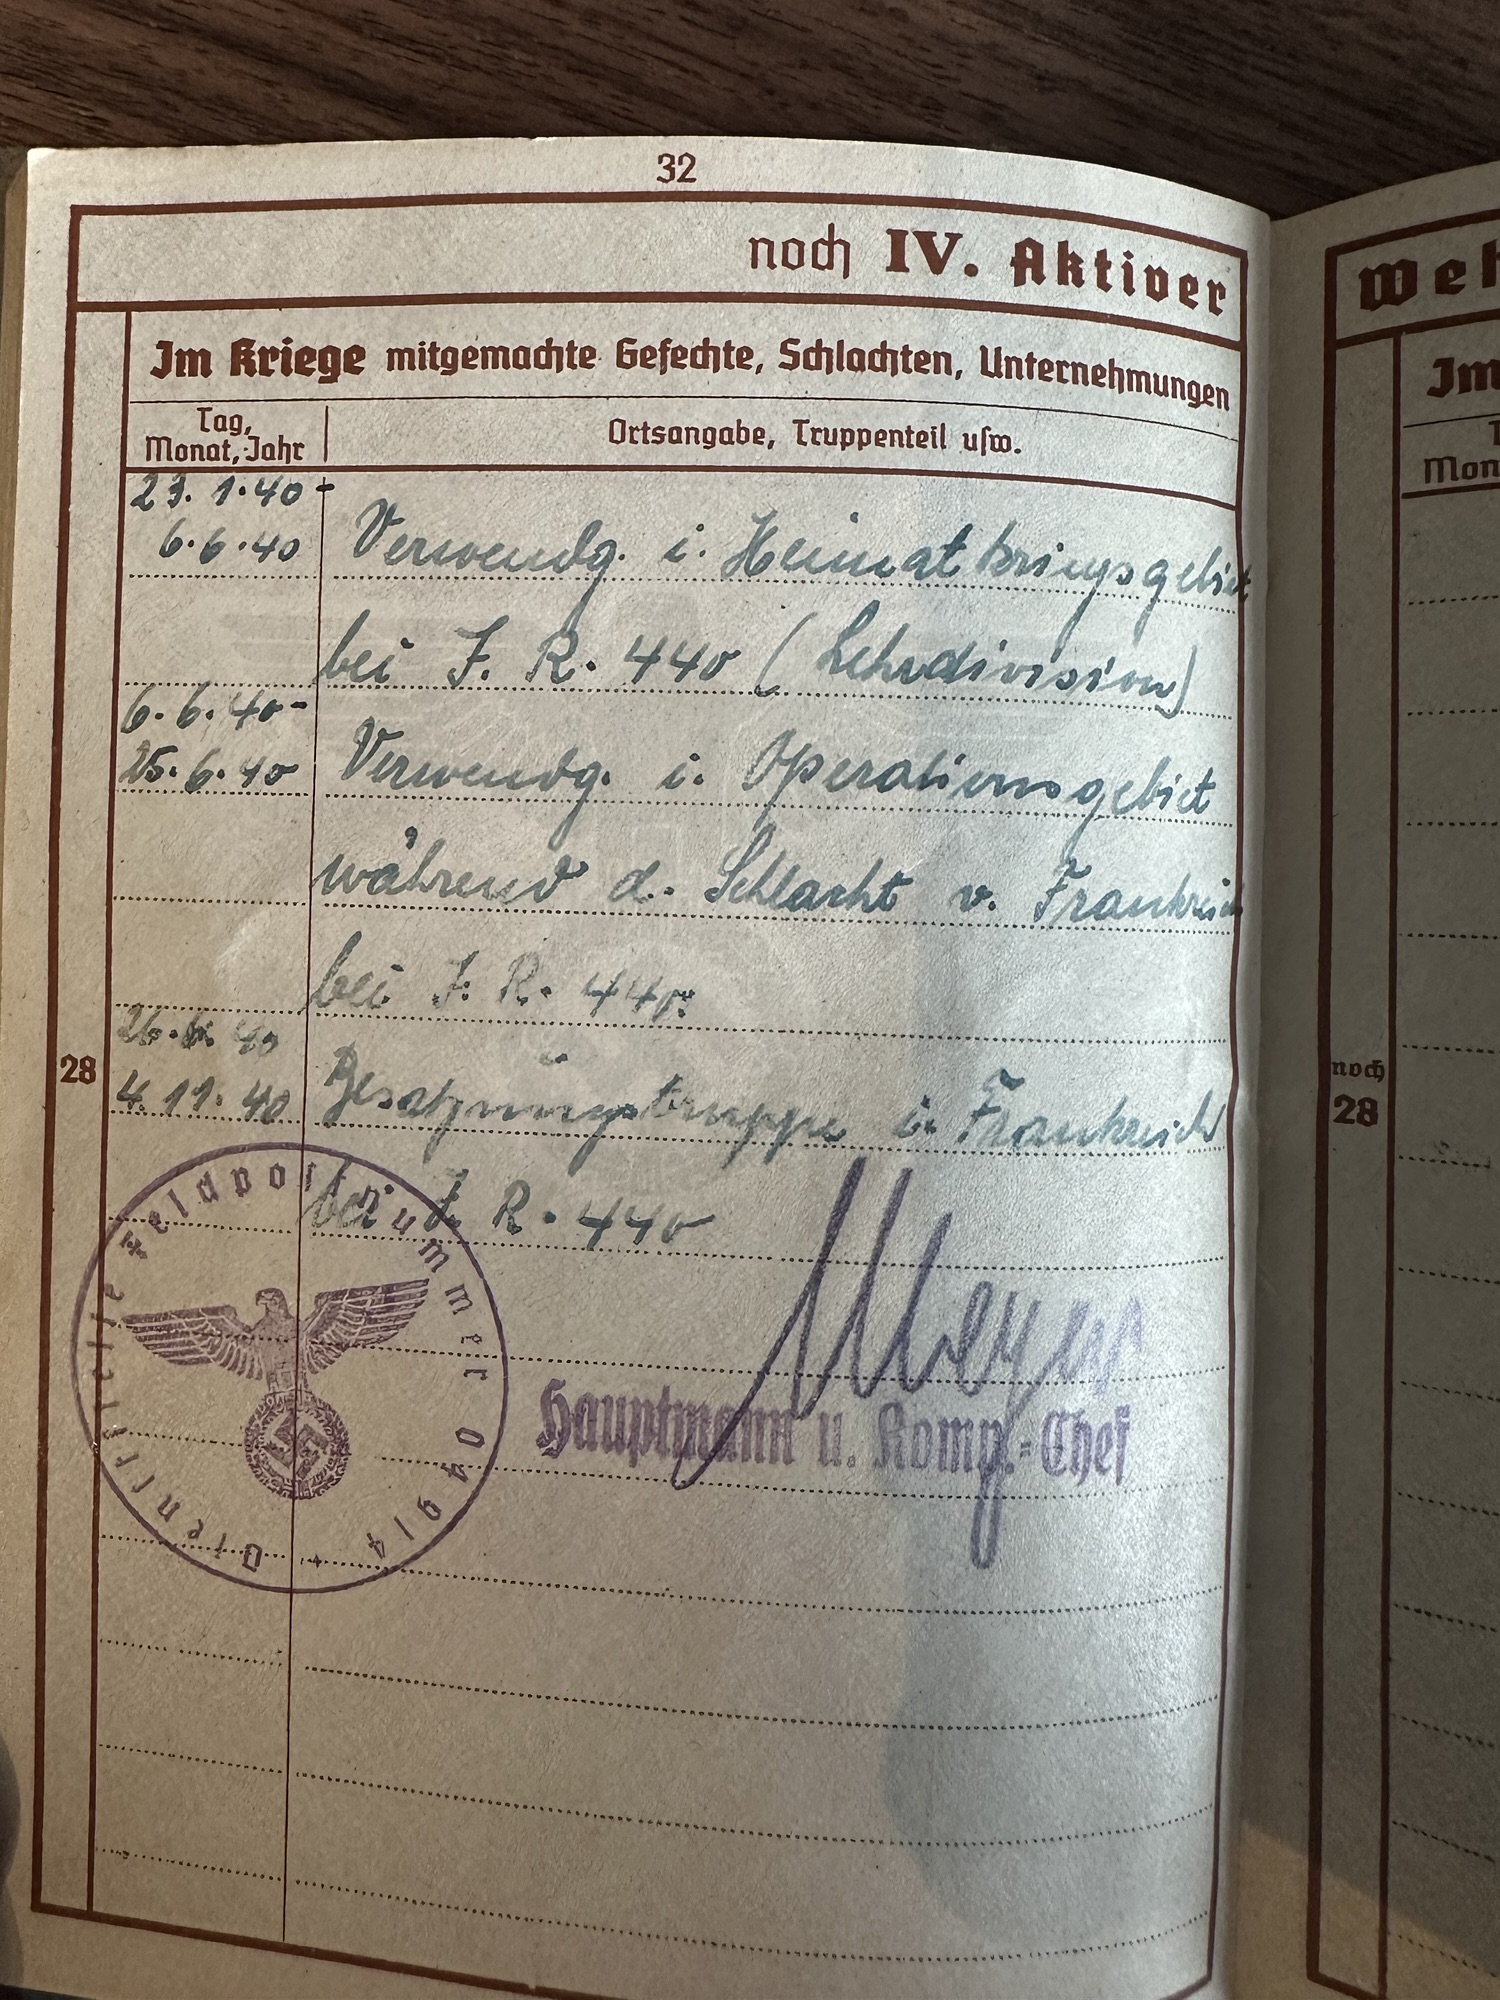 32
noch IV. Aktiver
Im Kriege mitgemachte Gefechte, Schlachten, Unternehmungen
Tag,
Monat, Jahr
Ortsangabe, Truppenteil usw.
23. 1. 40 -
6. 6. 40 Verwendg. i. Heimatkriegsgebiet
bei J. R. 440 (Lehrdivision)
6. 6. 40 -
25. 6. 40 Verwendg. i. Operationsgebiet
während d. Schlacht v. Frankreich
bei J. R. 440.
26. 6. 40
28
4. 11. 40 Besatzungstruppe i. Frankreich
bei J. R. 440
Dienststelle Feldpostnummer 04914
Meyer
Hauptmann u. Komp.-Chef
Weh
Im
T
Mon
noch
28